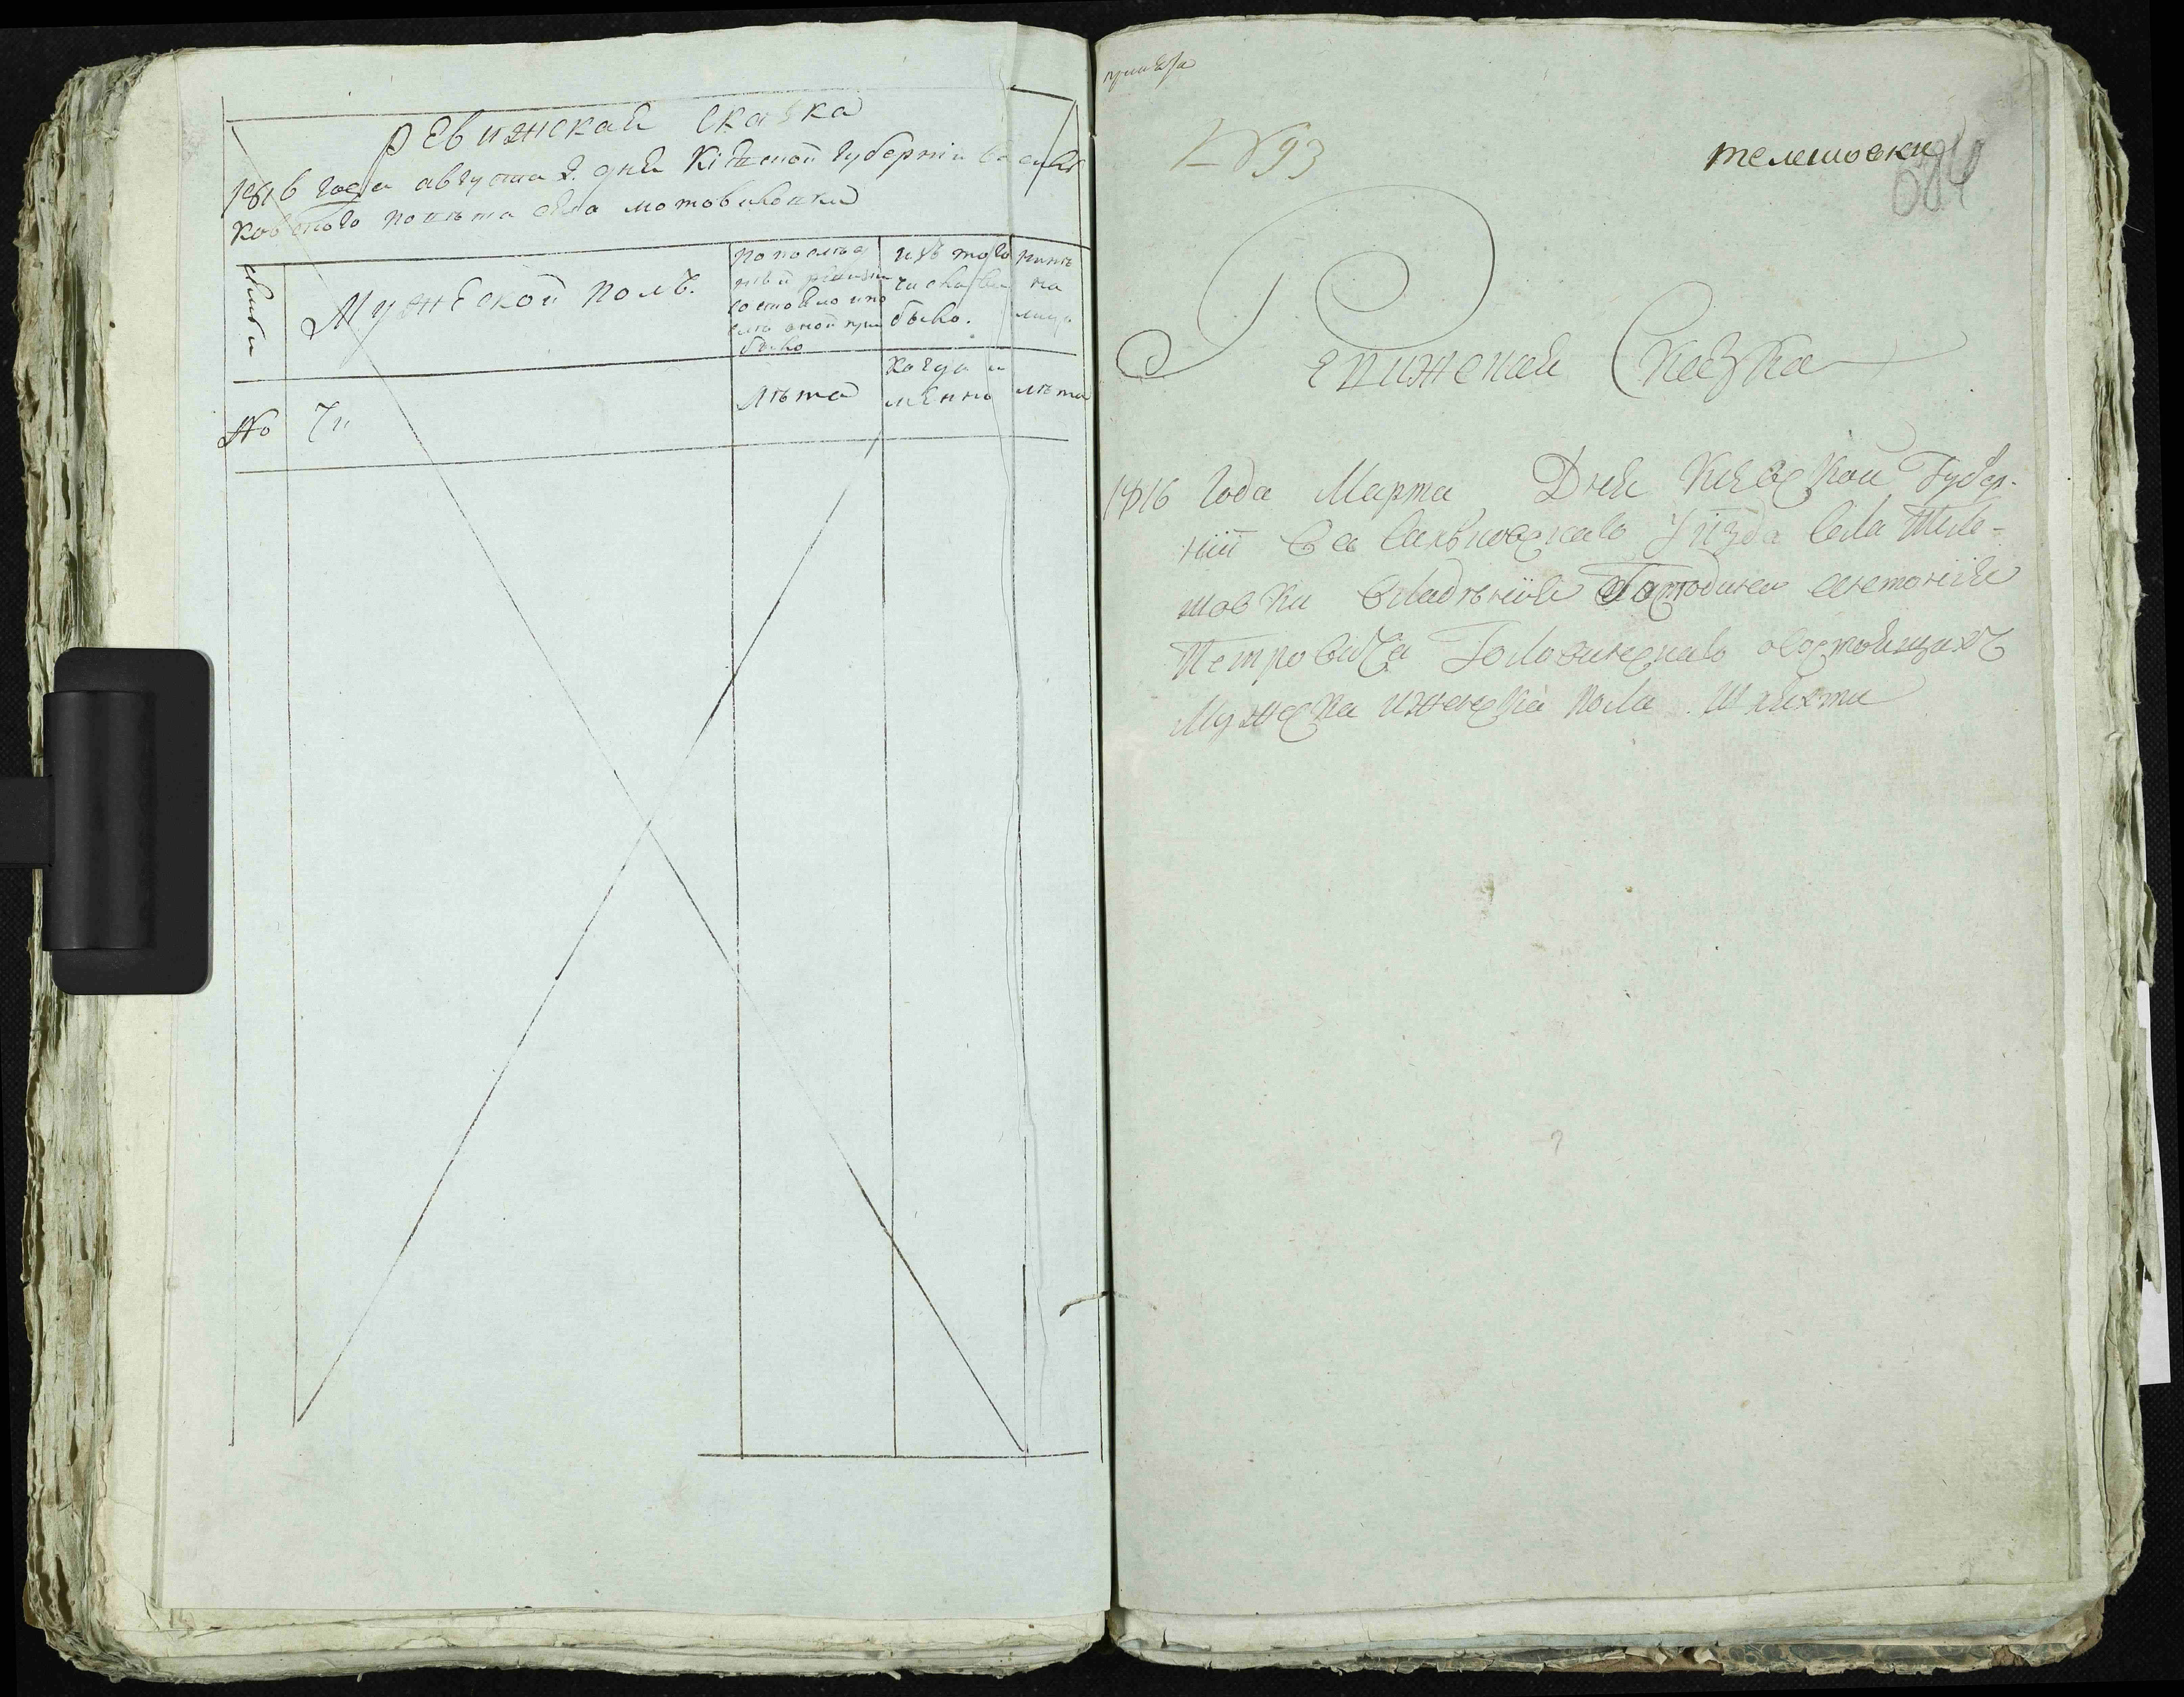 Ревижская сказка
1816 года августа 2. дня Кіевской губерніи василь
ковского повѣта села мотовиловки
Семьи
Мужеской полъ.
по послѣд
ней ревизіи
состояло и по
слѣ оной при
было
изъ того
числа вы
было.
нынѣ
на
лицо
№
Чи
лѣта
когда и
менно
лѣта
№ 93
телешовки
Ревижская Сказка
1816 Года Марта Дня Киевской Губер-
ніи Васильковскаго Уѣзда села Теле-
шовки владѣнія Господина антонія
Петровича Головинскаго состоящихъ
Мужеска и женска пола Шляхти